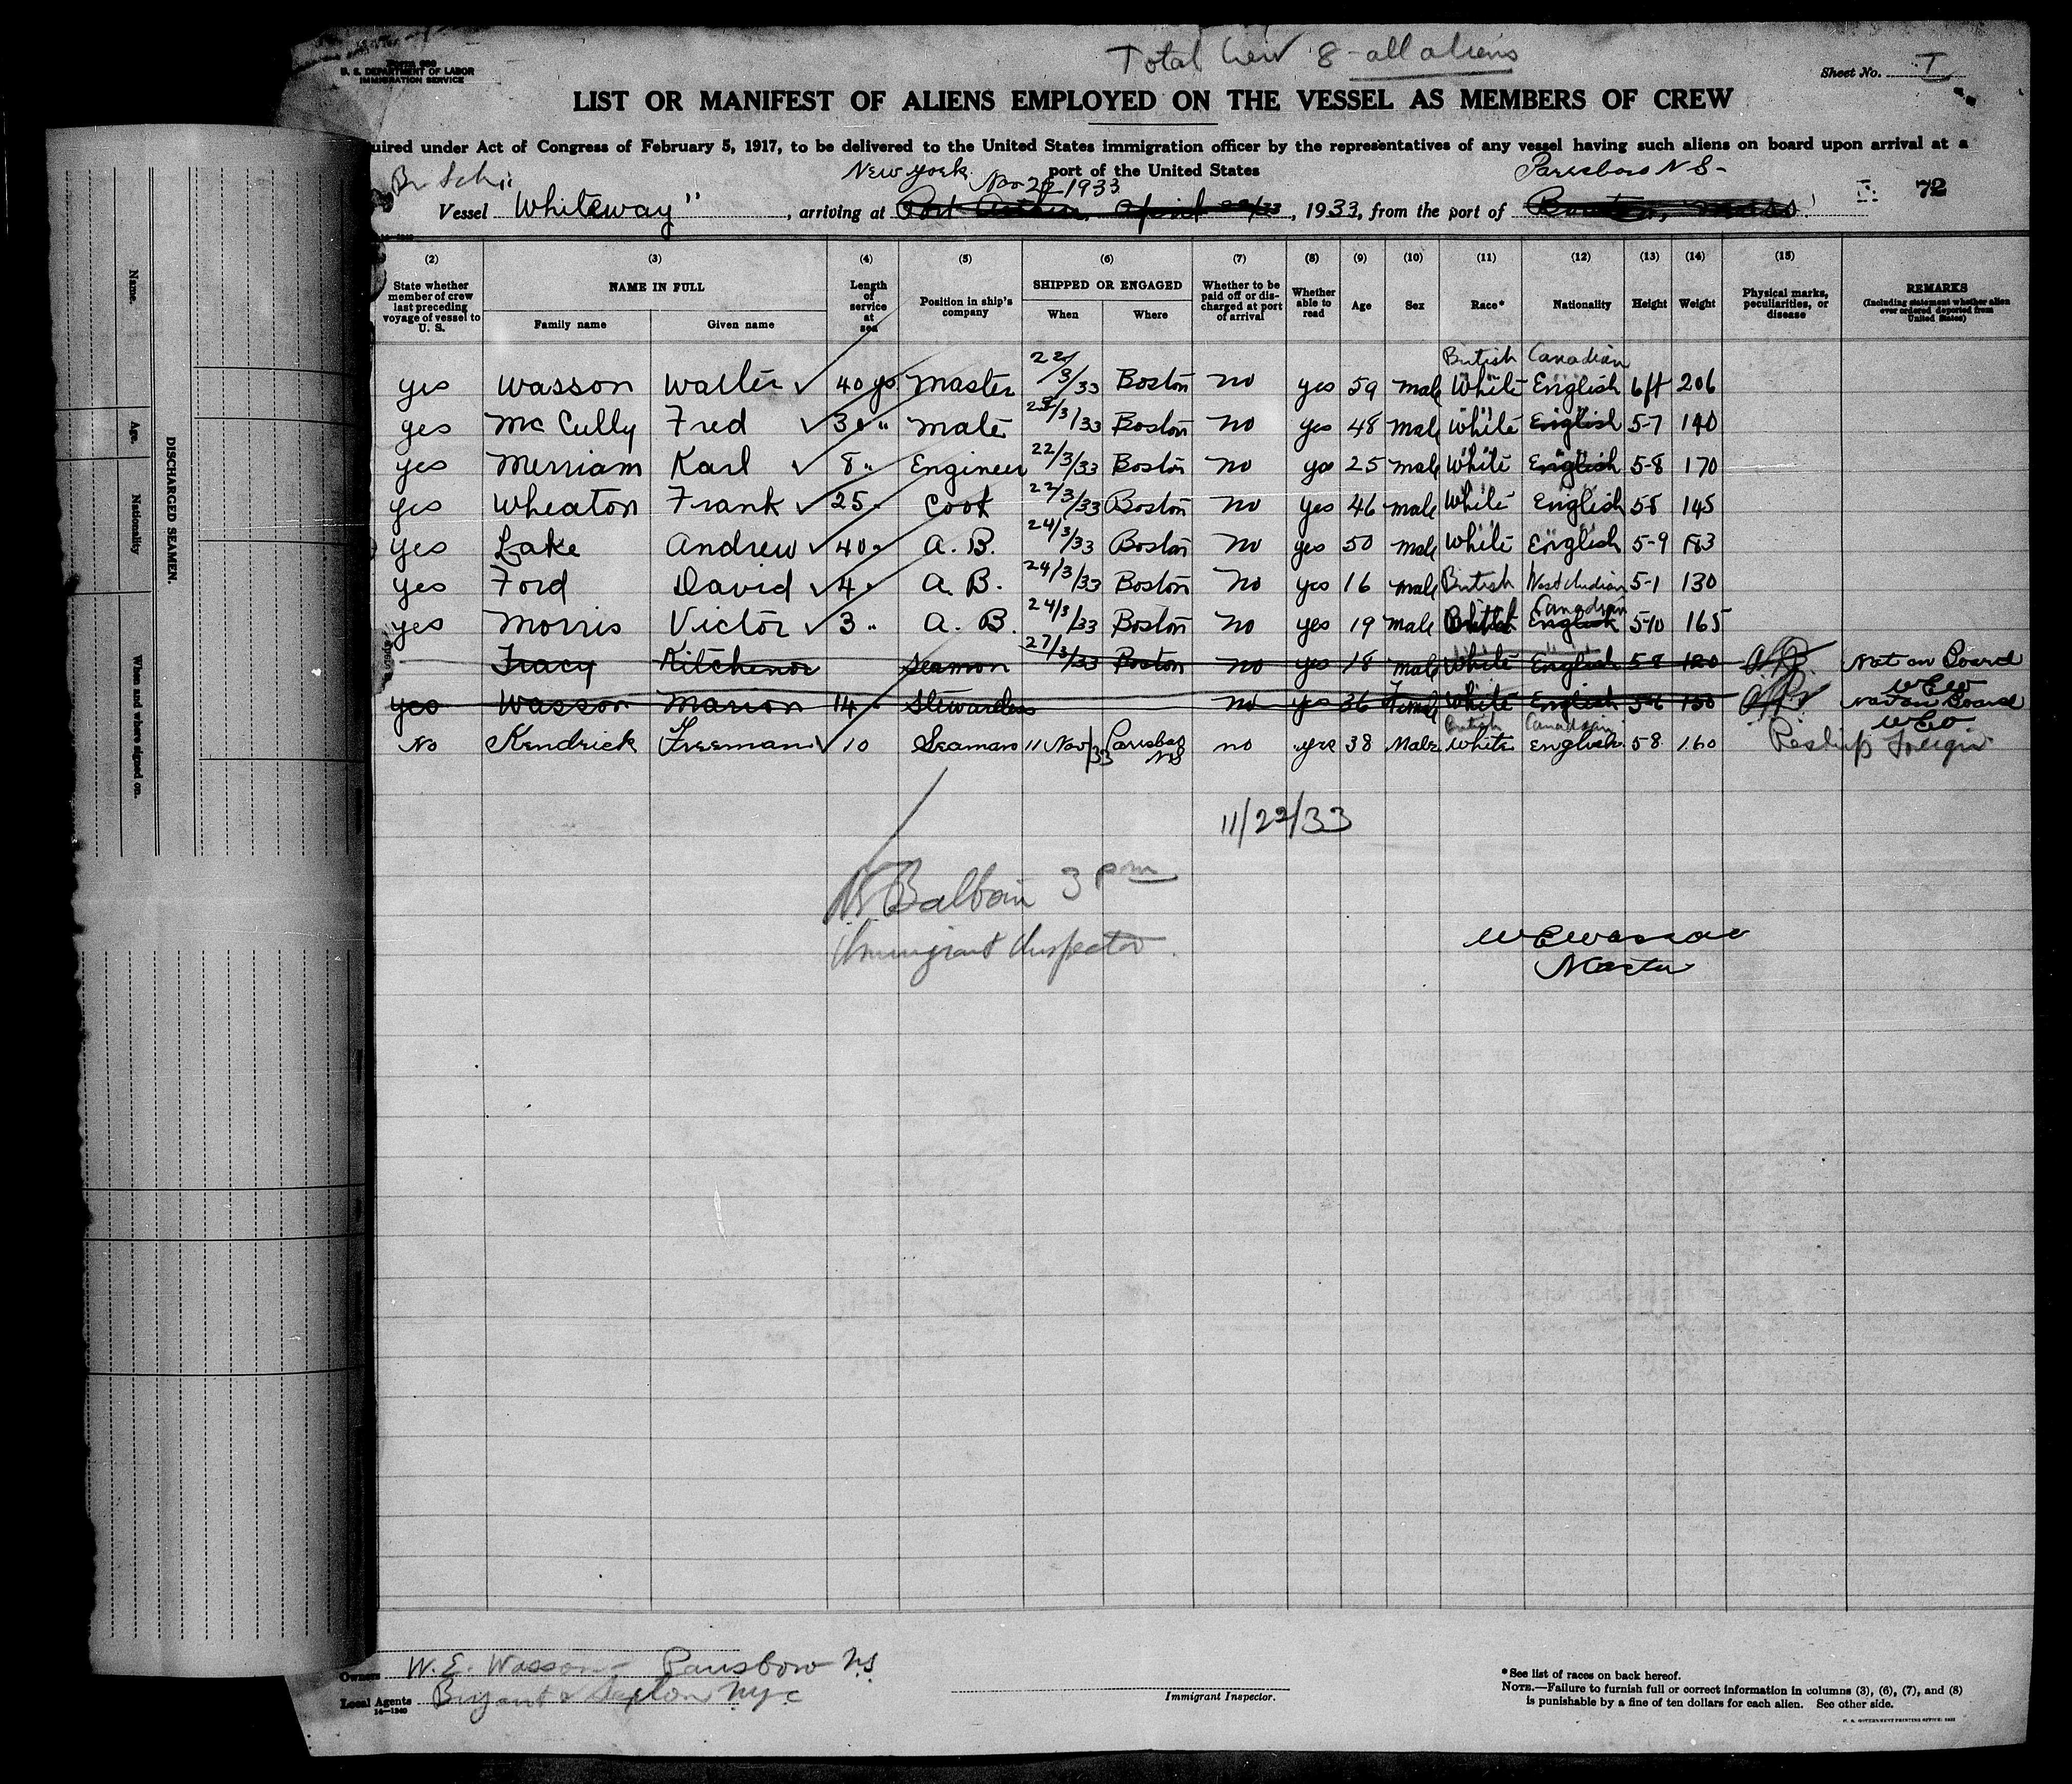 Total Crew 8 - all aliens
Form 680
U. S. DEPARTMENT OF LABOR
IMMIGRATION SERVICE
Sheet No. I
LIST OR MANIFEST OF ALIENS EMPLOYED ON THE VESSEL AS MEMBERS OF CREW
uired under Act of Congress of February 5, 1917, to be delivered to the United States immigration officer by the representatives of any vessel having such aliens on board upon arrival at a
port of the United States
Br Schr New York Nov 22 1933 Parrsboro N S-
Vessel Whiteway", arriving at Port April 22/33, 1933, from the port of Mass. 72
(2) (3) (4) (5) (6) (7) (8) (9) (10) (11) (12) (13) (14) (15)
State whether member of crew last preceding voyage of vessel to U. S.
NAME IN FULL
Family name Given name
Length of service at sea
Position in ship's company
SHIPPED OR ENGAGED
When Where
Whether to be paid off or discharged at port of arrival
Whether able to read
Age Sex Race* Nationality Height Weight
Physical marks, peculiarities, or disease
REMARKS
(Including statement whether alien ever ordered deported from United States)
British Canadian
yes Wasson Walter 40 ys Master 22/3/33 Boston no yes 59 male White English 6ft 206
yes McCully Fred 30 " mate 25/3/33 Boston no yes 48 male White English 5-7 140
yes Merriam Karl 8 " Engineer 22/3/33 Boston no yes 25 male White English 5-8 170
yes Wheaton Frank 25 " Cook 22/3/33 Boston no yes 46 male White English 5-8 145
yes Lake Andrew 40 " A. B. 24/3/33 Boston no yes 50 male White English 5-9 183
yes Ford David 4 " A. B. 24/3/33 Boston no yes 16 male British West Indian 5-1 130
Canadian
yes Morris Victor 3 " A. B. 24/3/33 Boston no yes 19 male British English 5-10 165
Tracy Kitchenor Seamon 27/3/33 Boston no yes 18 male White English 5-8 120 Not on Board
WEW
yes Wasson Marion 14 " Stewardess no yes 36 Female White English 5-6 130 Not on Board
WEW
British Canadian
No Kendrick Freeman 10 Seaman 11 Nov/33 Parrsboro NS no yes 38 Male White English 5 8 160 Reship Foreign
11/22/33
Balboni 3 pm
Immigrant Inspector.
W E Wasson
Master
Owners W. E. Wasson - Parrsboro N.S.
Local Agents NYC
14—1240
Immigrant Inspector.
*See list of races on back hereof.
NOTE.—Failure to furnish full or correct information in columns (3), (6), (7), and (8)
is punishable by a fine of ten dollars for each alien. See other side.
U. S. GOVERNMENT PRINTING OFFICE: 1932
DISCHARGED SEAMEN.
Name.
Age.
Nationality
When and where signed on.